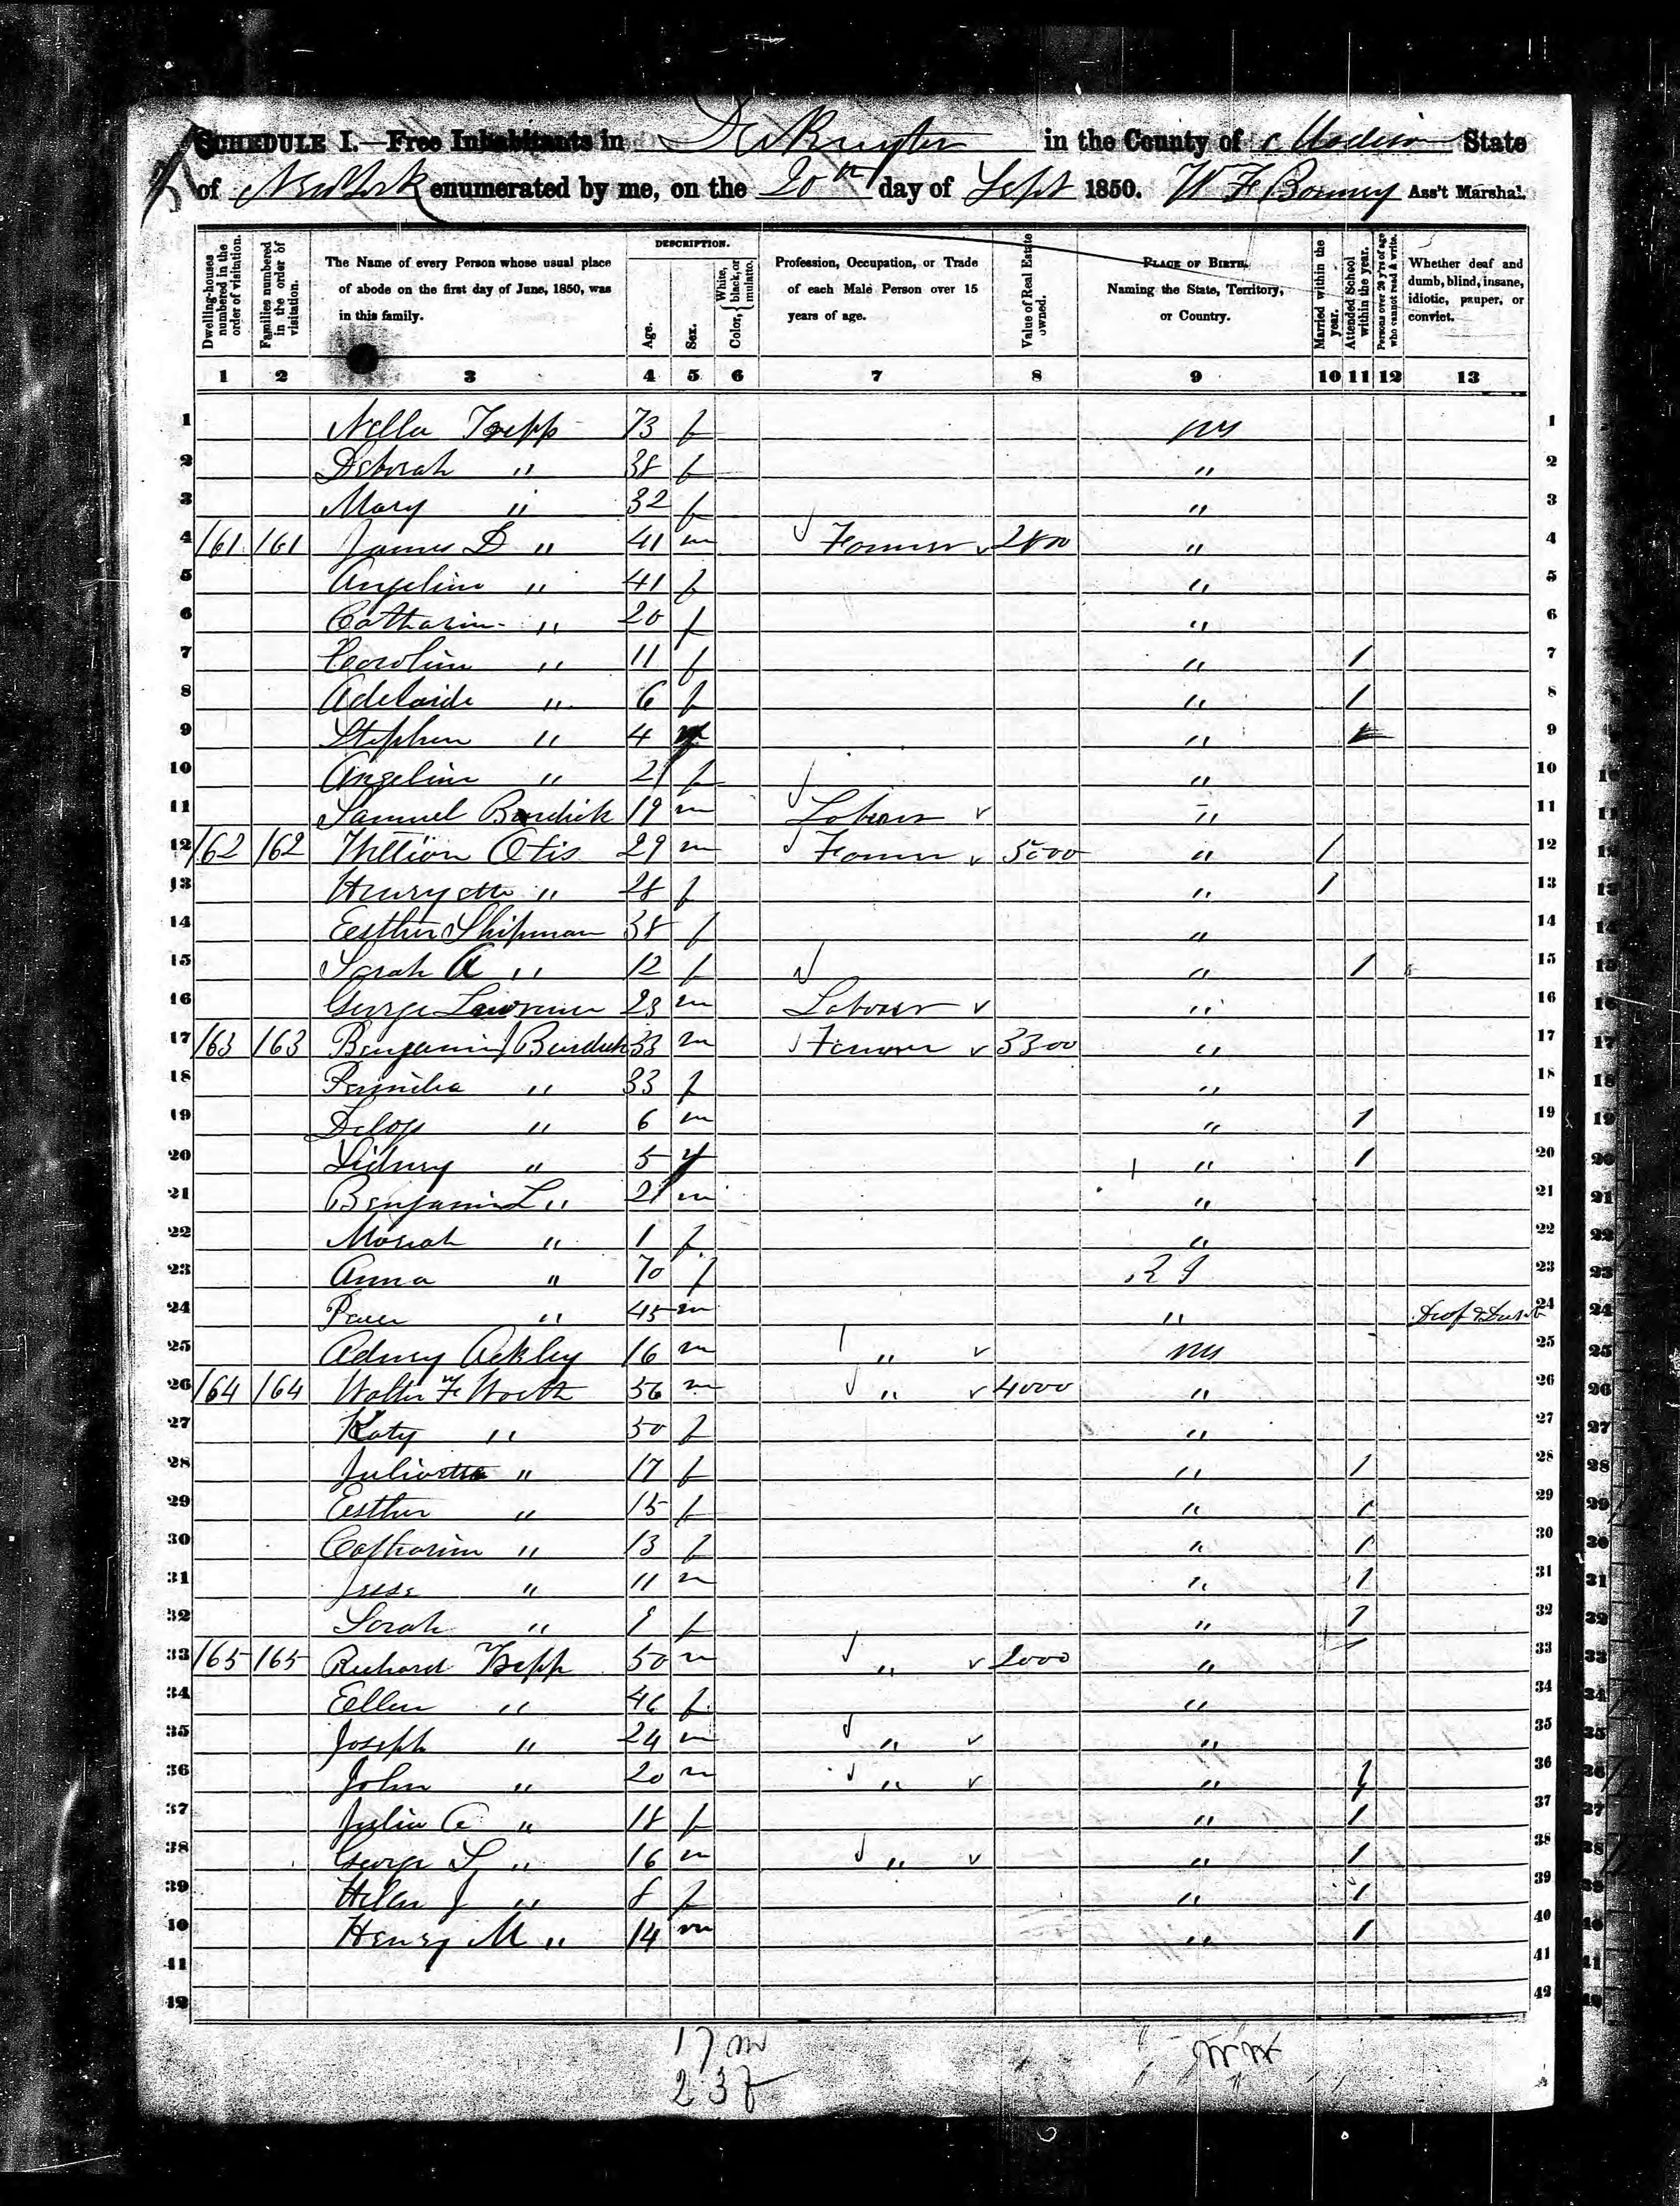 SCHEDULE I.—Free Inhabitants in De Ruyter in the County of Madison State
of New York enumerated by me, on the 20th day of Sept 1850. W F Bonney Ass't Marshal.
Dwelling-houses numbered in the order of visitation.
Families numbered in the order of visitation.
The Name of every Person whose usual place of abode on the first day of June, 1850, was in this family.
DESCRIPTION.
Age.
Sex.
Color, White, black, or mulatto.
Profession, Occupation, or Trade of each Male Person over 15 years of age.
Value of Real Estate owned.
PLACE OF BIRTH. Naming the State, Territory, or Country.
Married within the year.
Attended School within the year.
Persons over 20 y'rs of age who cannot read & write.
Whether deaf and dumb, blind, insane, idiotic, pauper, or convict.
1 2 3 4 5 6 7 8 9 10 11 12 13
1 Tripp 73 f NY 1
2 Deborah " 38 f " 2
3 Mary " 32 f " 3
4 161 161 James D " 41 m Farmer 2800 " 4
5 Angeline " 41 f " 5
6 Catharin " 20 f " 6
7 Caroline " 11 f " 1 7
8 Adelaide " 6 f " 1 8
9 Stephen " 4 " 9
10 Angeline " 2 f " 10
11 Samuel Burdick 19 m Laborer " 11
12 162 162 Otis 29 m Farmer 5000 " 1 12
13 Henryette " 28 f " 1 13
14 Eesther Shipman 38 f " 14
15 Sarah A " 12 f " 1 15
16 George Lawrence 23 m Laborer " 16
17 163 163 Benjamin J Burdick 33 m Farmer 3300 " 17
18 " 33 f " 18
19 Delos " 6 m " 1 19
20 Sidney " 5 " 1 20
21 Benjamin L " 2 m " 21
22 Mariah " 1 f " 22
23 Anna " 70 f R I 23
24 " 45 m " Deaf & Dumb 24
25 Ackley 16 m " NY 25
26 164 164 Walter F Worth 56 m " 4000 " 26
27 Katy " 50 f " 27
28 Juliaette " 17 f " 1 28
29 Eesther " 15 f " 1 29
30 Catharine " 13 f " 1 30
31 Jesse " 11 m " 1 31
32 Sarah " f " 1 32
33 165 165 Richard Tripp 50 m " 2000 " 33
34 Ellen " 46 f " 34
35 Joseph " 24 m " " 35
36 John " 20 m " " 1 36
37 Julia " 18 f " 1 37
38 George L " 16 m " " 1 38
39 Helen J " 8 f " 1 39
40 Henry M " 14 m " 1 40
41 41
42 42
17 m
23 f